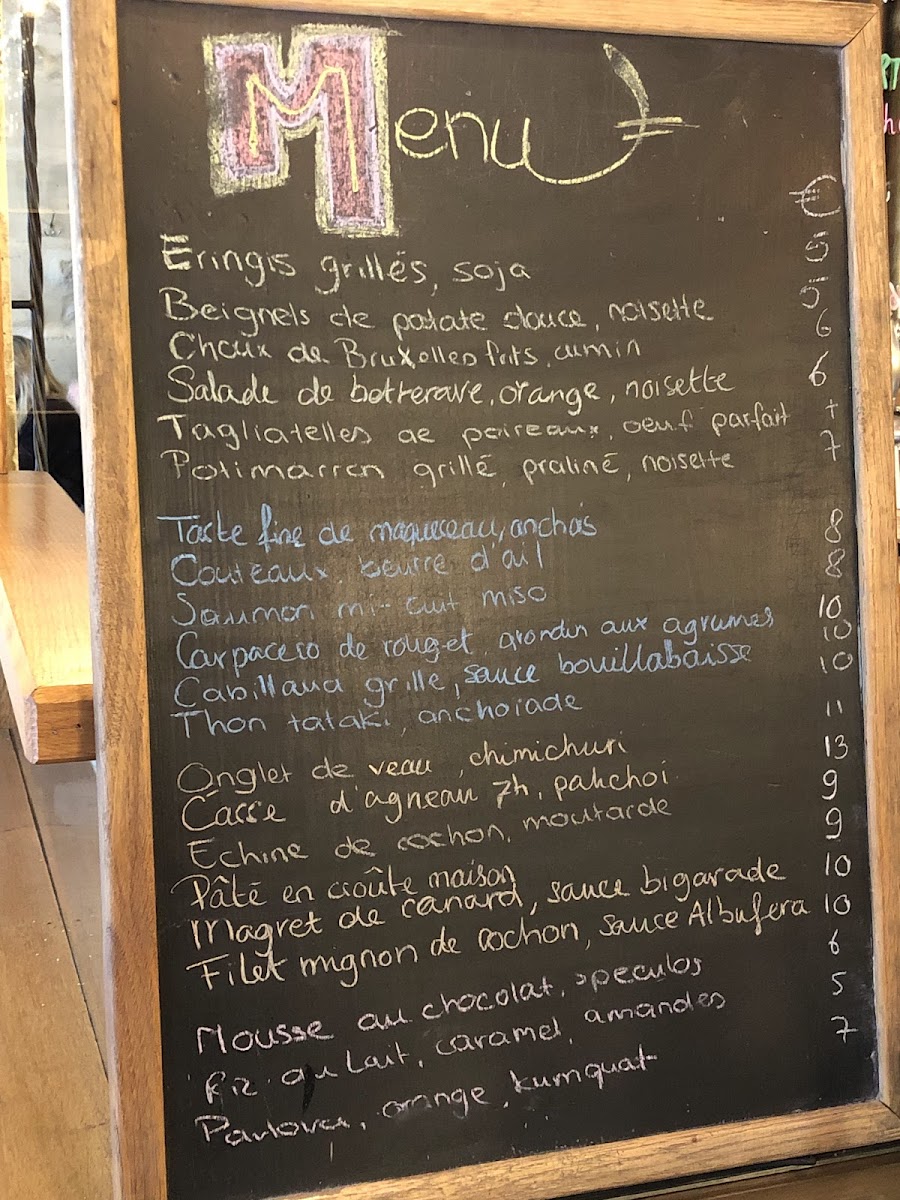 Menu
€
Eringis grillés, soja 5
Beignets de patate douce, noisette 5
Choux de Bruxelles frits, cumin 6
Salade de betterave, orange, noisette 6
Tagliatelles de poireaux, oeuf parfait 7
Potimarron grillé, praliné, noisette 7
Tarte fine de maquereau, anchois 8
Couteaux, beurre d'ail 8
Saumon mi-cuit miso
Carpaccio de rouget grondin aux agrumes 10
Cabillaud grillé, sauce bouillabaisse 10
Thon tataki, anchoiade 10
Onglet de veau, chimichuri 11
Casse d'agneau 7h, pakchoi 13
Echine de cochon, moutarde 9
Pâté en croûte maison 9
Magret de canard, sauce bigarade 10
Filet mignon de cochon, sauce Albufera 10
Mousse au chocolat, speculos 6
Riz au Lait, caramel, amandes 5
Pavlova, orange, kumquat 7